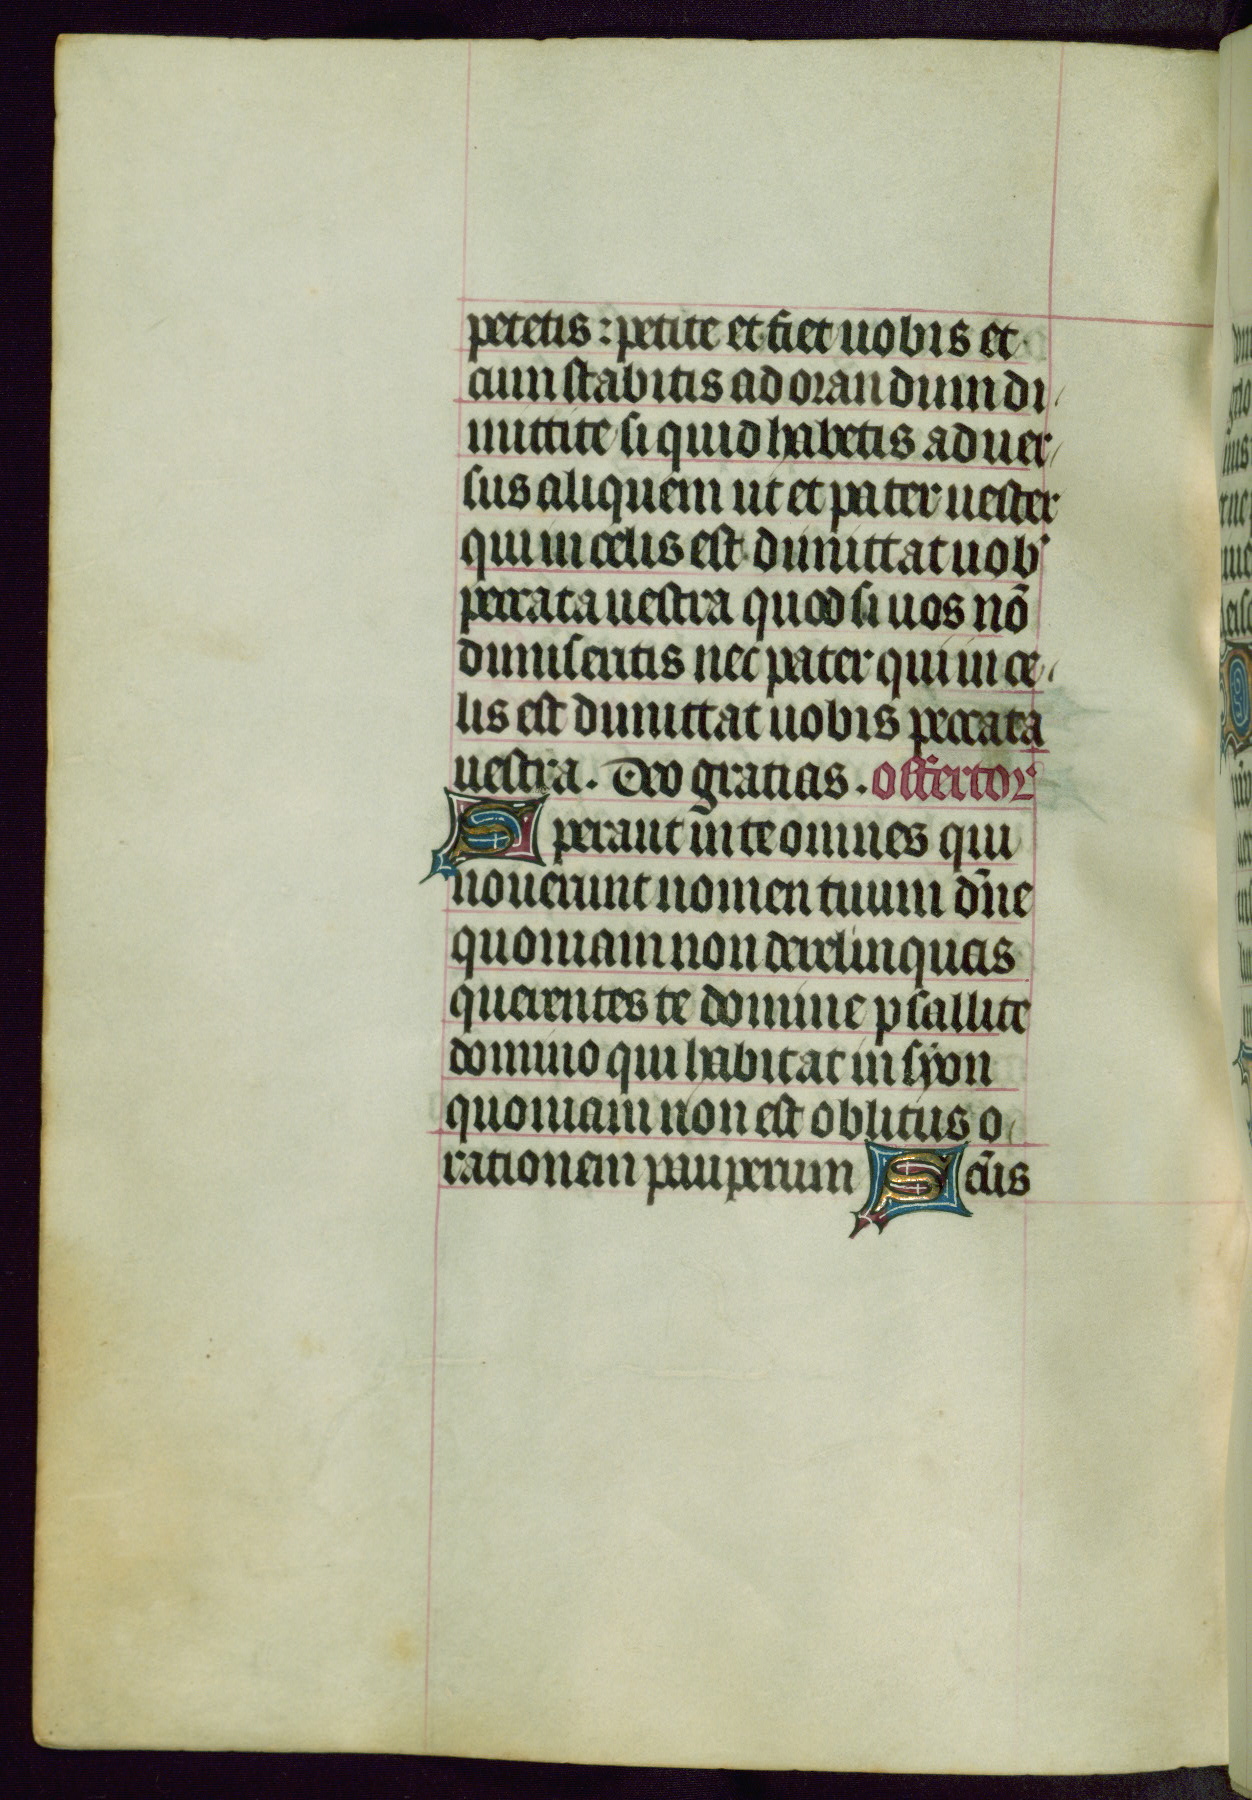 petetis : petite et fiet uobis et
cum stabitis ad orandum di
mittite si quid habetis aduer
sus aliquem ut et pater uester
qui in celis est dimittat uob'
peccata uestra quod si uos nō
dimiseritis nec pater qui in ce
lis est dimittat uobis peccata
uestra. Deo gratias. offertor
Sperant in te omnes qui
nouerunt nomen tuum dn̄e
quoniam non derelinquas
querentes te domine psallite
domino qui habitat in syon
quoniam non est oblitus o
rationem pauperum Scūs